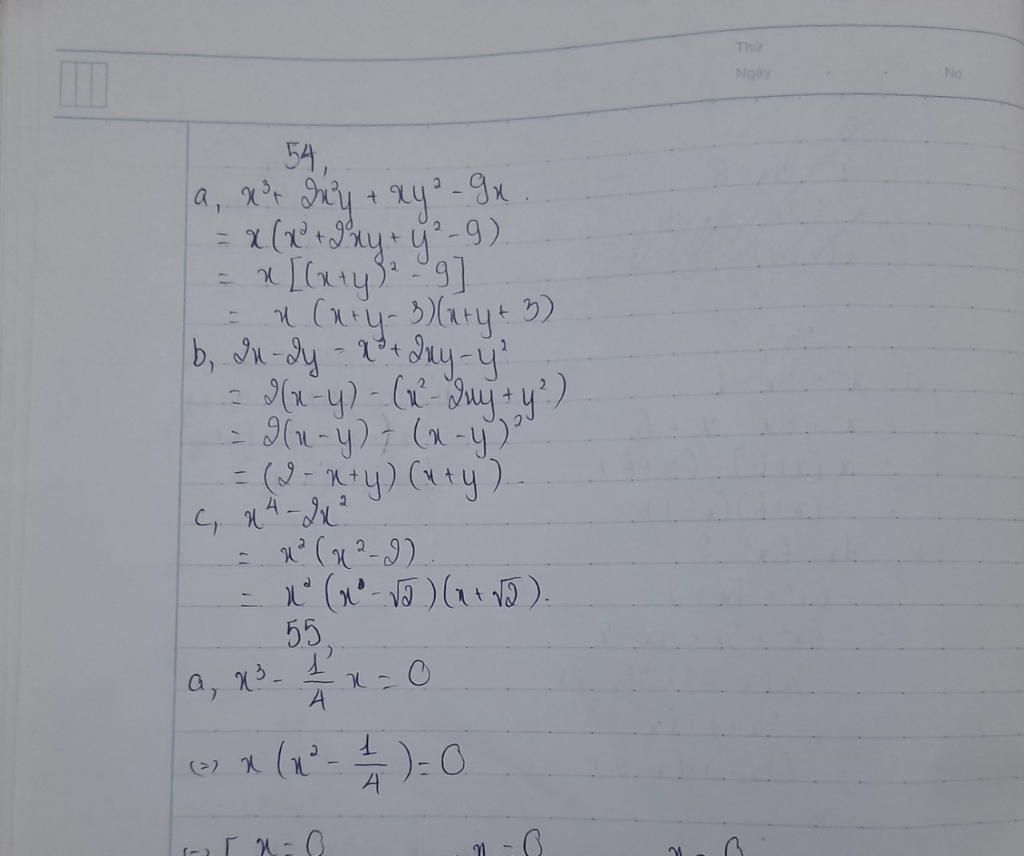 Thứ
Ngày
No.
54,
a, x³ + 2x²y + xy² - 9x.
= x(x² + 2xy + y² - 9)
= x[(x+y)² - 9]
= x (x+y-3)(x+y+3)
b, 2x - 2y - x² + 2xy - y²
= 2(x-y) - (x² - 2xy + y²)
= 2(x-y) - (x-y)²
= (2 - x+y) (x+y).
c, x⁴ - 2x²
= x² (x² - 2).
= x² (x - √2)(x + √2).
55,
a, x³ - 1/4 x = 0
(=) x (x² - 1/4) = 0
(=) [ x = 0 x = 0 x = 0